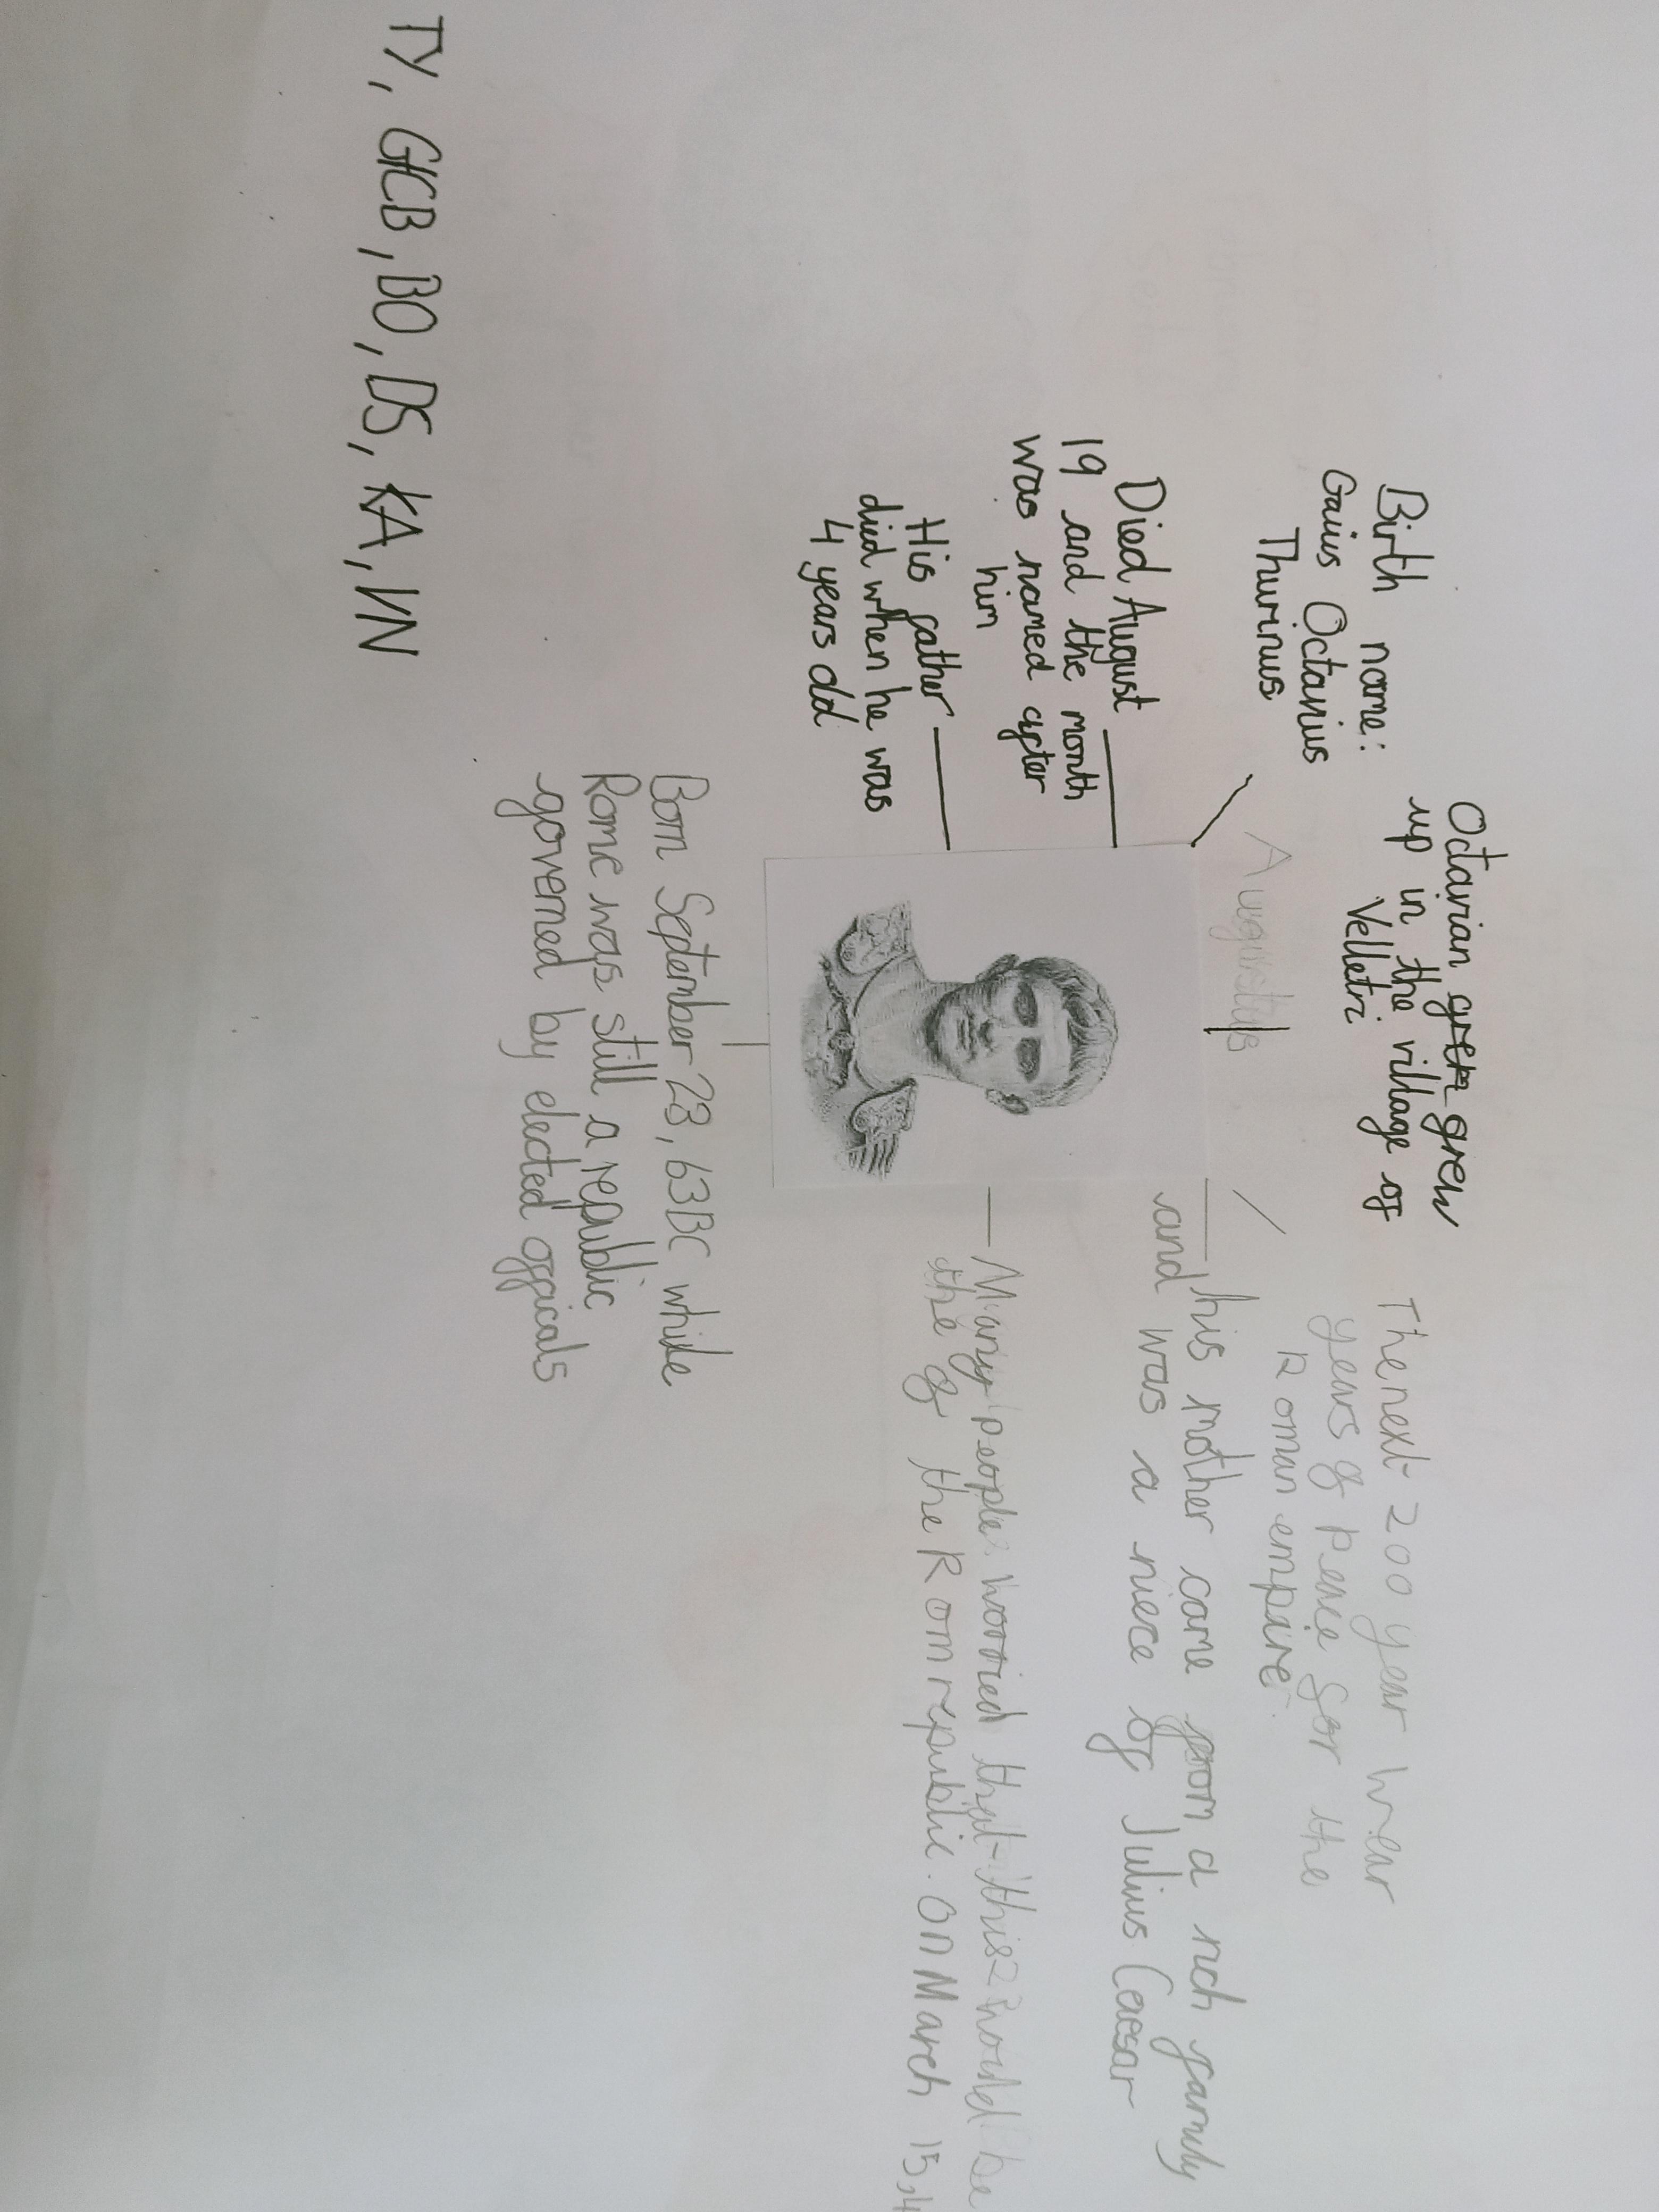 Octavian grew grew
up in the village of
Velletri
Birth name:
Gaius Octanius
Thurinus
Augustus
The next 200 year wear
years of peace for the
Roman empire
Died August
19 and the month
was named after
him
his mother came from a rich family
and was a niece of Julius Caesar
His father
died when he was
4 years old
Many people worried that this would be
the of the Rom republic. ON March 15,4
Born September 23, 63BC while
Rome was still a republic
governed by elected officals
TY, GCB, BO, DS, KA, VN